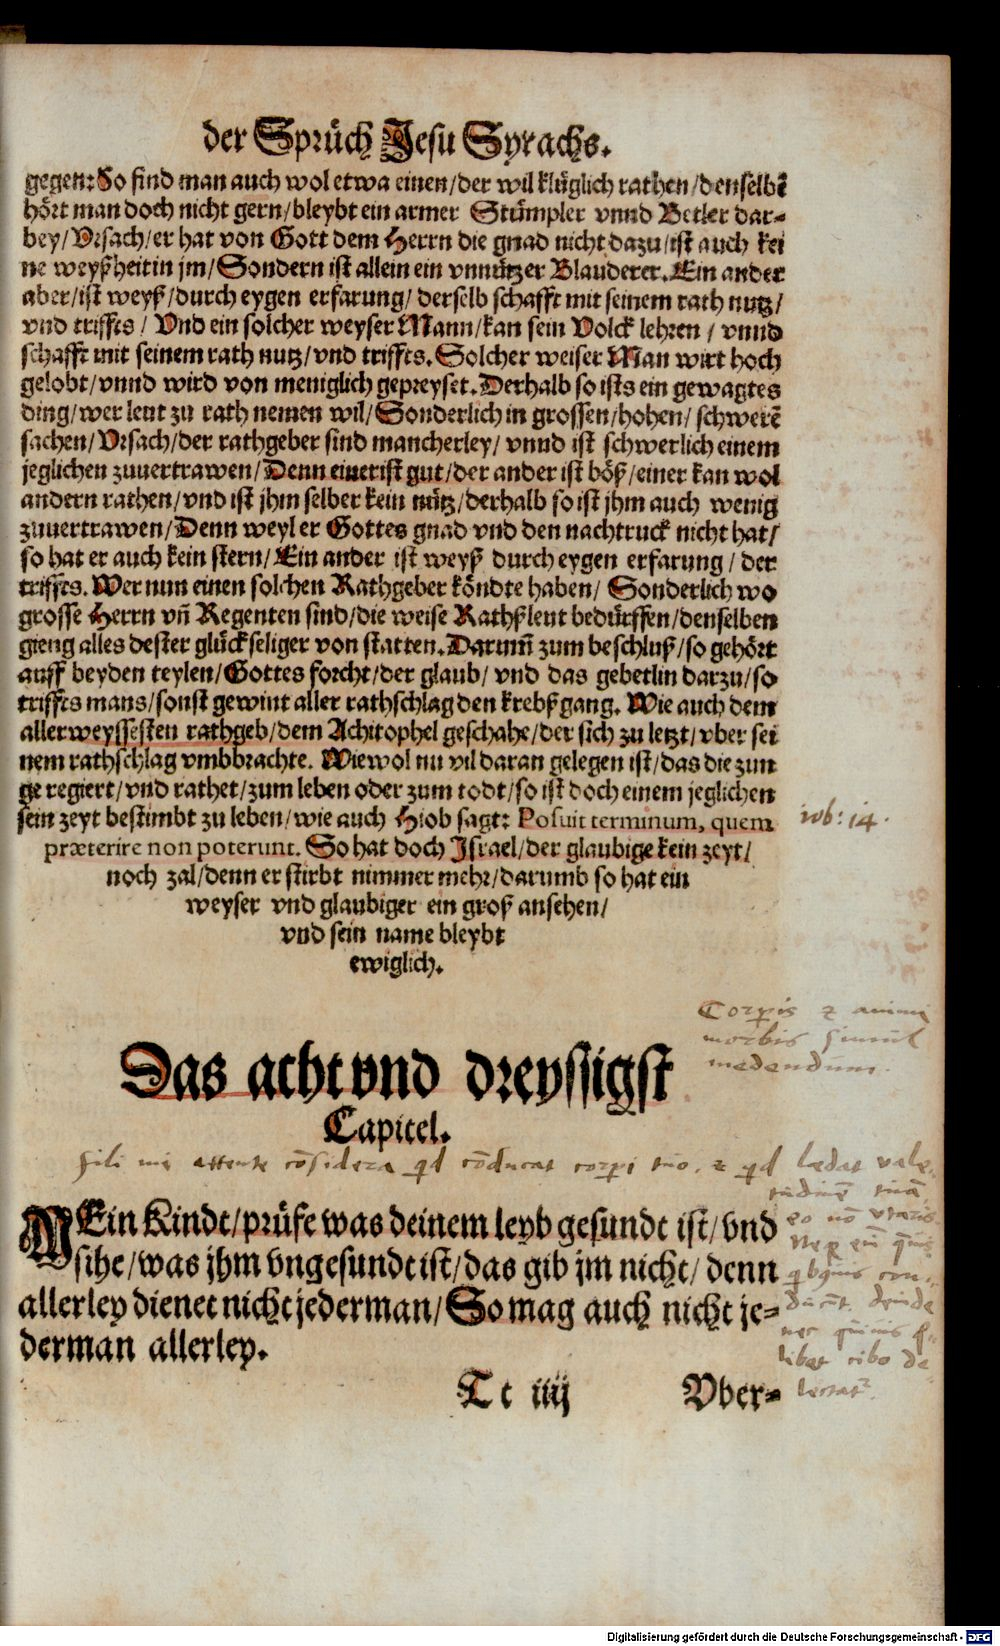 der Sprüch Jesu Syrachs.
gegen: So find man auch wol etwa einen/der wil klüglich rathen/denselbē
hört man doch nicht gern/bleybt ein armer Stümpler vnnd Betler dar-
bey/Vrsach/er hat von Gott dem Herrn die gnad nicht dazu/ist auch kei
ne weyßheit in jm/Sondern ist allein ein vnnützer Blauderer. Ein ander
aber/ist weyß/durch eygen erfarung/ derselb schafft mit seinem rath nutz/
vnd triffts/ Vnd ein solcher weyser Mann/kan sein Volck lehren/ vnnd
schafft mit seinem rath nutz/vnd triffts. Solcher weiser Man wirt hoch
gelobt/vnnd wird von meniglich gepreyset. Derhalb so ists ein gewagtes
ding/wer leut zu rath nemen wil/Sonderlich in grossen/hohen/ schwerē
sachen/Vrsach/der rathgeber sind mancherley/ vnnd ist schwerlich einem
jeglichen zuuertrawen/Denn einer ist gut/der ander ist böß/einer kan wol
andern rathen/vnd ist jhm selber kein nütz/derhalb so ist jhm auch wenig
zuuertrawen/Denn weyl er Gottes gnad vnd den nachtruck nicht hat/
so hat er auch kein stern/Ein ander ist weyß durch eygen erfarung/ der
triffts. Wer nun einen solchen Rathgeber köndte haben/ Sonderlich wo
grosse Herrn vñ Regenten sind/die weise Rathßleut bedürffen/denselben
gieng alles dester glückseliger von statten. Darum̄ zum beschluß/so gehört
auff beyden teylen/Gottes forcht/der glaub/ vnd das gebetlin darzu/so
triffts mans/sonst gewint aller rathschlag den krebßgang. Wie auch dem
allerweyssesten rathgeb/dem Achitophel geschahe/der sich zu letzt/vber sei
nem rathschlag vmbbrachte. Wiewol nu vil daran gelegen ist/das die zun
ge regiert/vnd rathet/zum leben oder zum todt/so ist doch einem jeglichen
sein zeyt bestimbt zu leben/wie auch Hiob sagt: Posuit terminum, quem
iob: 14.
præterire non poterunt. So hat doch Israel/der glaubige kein zeyt/
noch zal/denn er stirbt nimmer mehr/darumb so hat ein
weyser vnd glaubiger ein groß ansehen/
vnd sein name bleybt
ewiglich.
Corpis & animi
morbis simul
medendum.
Das acht vnd dreyssigst
Capitel.
fili mi attente cōsidera qd cōducat corpi tuo, & qd lædat vale-
tudinē tuā,
eo nō vtaris
MEin Kindt/prüfe was deinem leyb gesundt ist/vnd
sihe/was jhm vngesundt ist/das gib jm nicht/ denn
allerley dienet nicht jederman/So mag auch nicht je-
derman allerley.
libet cibo de-
lectat
Tt iiij
Vber-
Digitalisierung gefördert durch die Deutsche Forschungsgemeinschaft - DFG